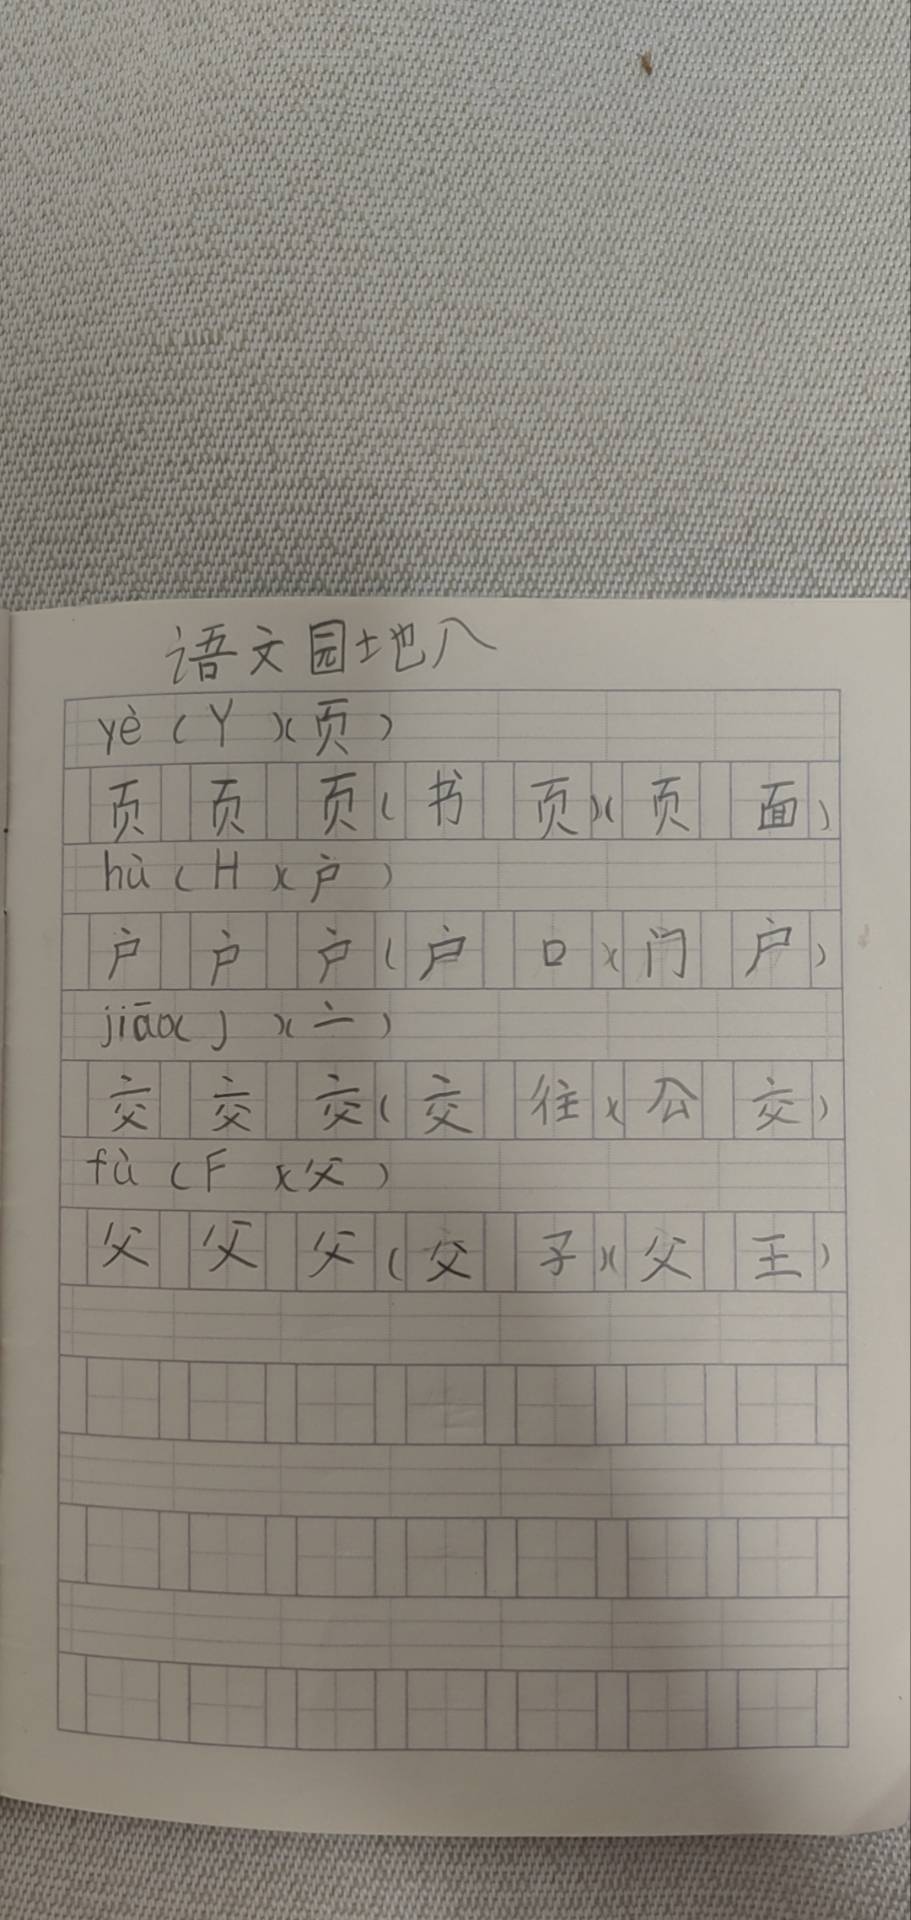 语文园地八
yè（Y）（页）
页 页 页（书 页）（页 面）
hù（H）（户）
户 户 户（户 口）（门 户）
jiāo（J）（亠）
交 交 交（交 往）（公 交）
fù（F）（父）
父 父 父（父 子）（父 王）